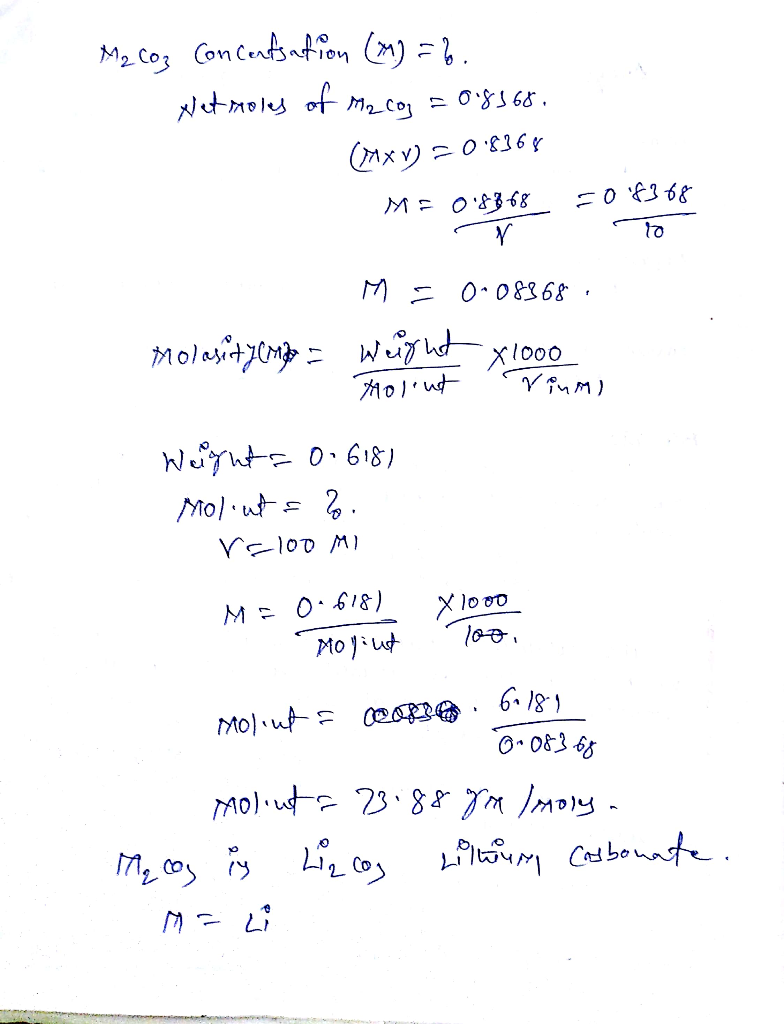 M2CO3 Concentration (M) = ?.
Net moles of M2CO3 = 0.8368.
(M×V) = 0.8368
M = 0.8368/V = 0.8368/10
M = 0.08368.
Molarity(M) = Weight/Mol.wt × 1000/V in Ml
Weight = 0.6181
Mol.wt = ?.
V = 100 Ml
M = 0.6181/Mol.wt × 1000/100.
Mol.wt = . 6.181/0.08368
Mol.wt = 73.88 gm/moly.
M2CO3 is Li2CO3 Lithium Carbonate.
M = Li